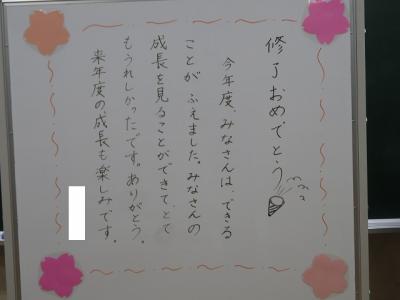 修了おめでとう
今年度、みなさんは、できる
ことが ふえました。みなさんの
成長を見ることができて、とて
もうれしかったです。ありがとう。
来年度の成長も楽しみです。